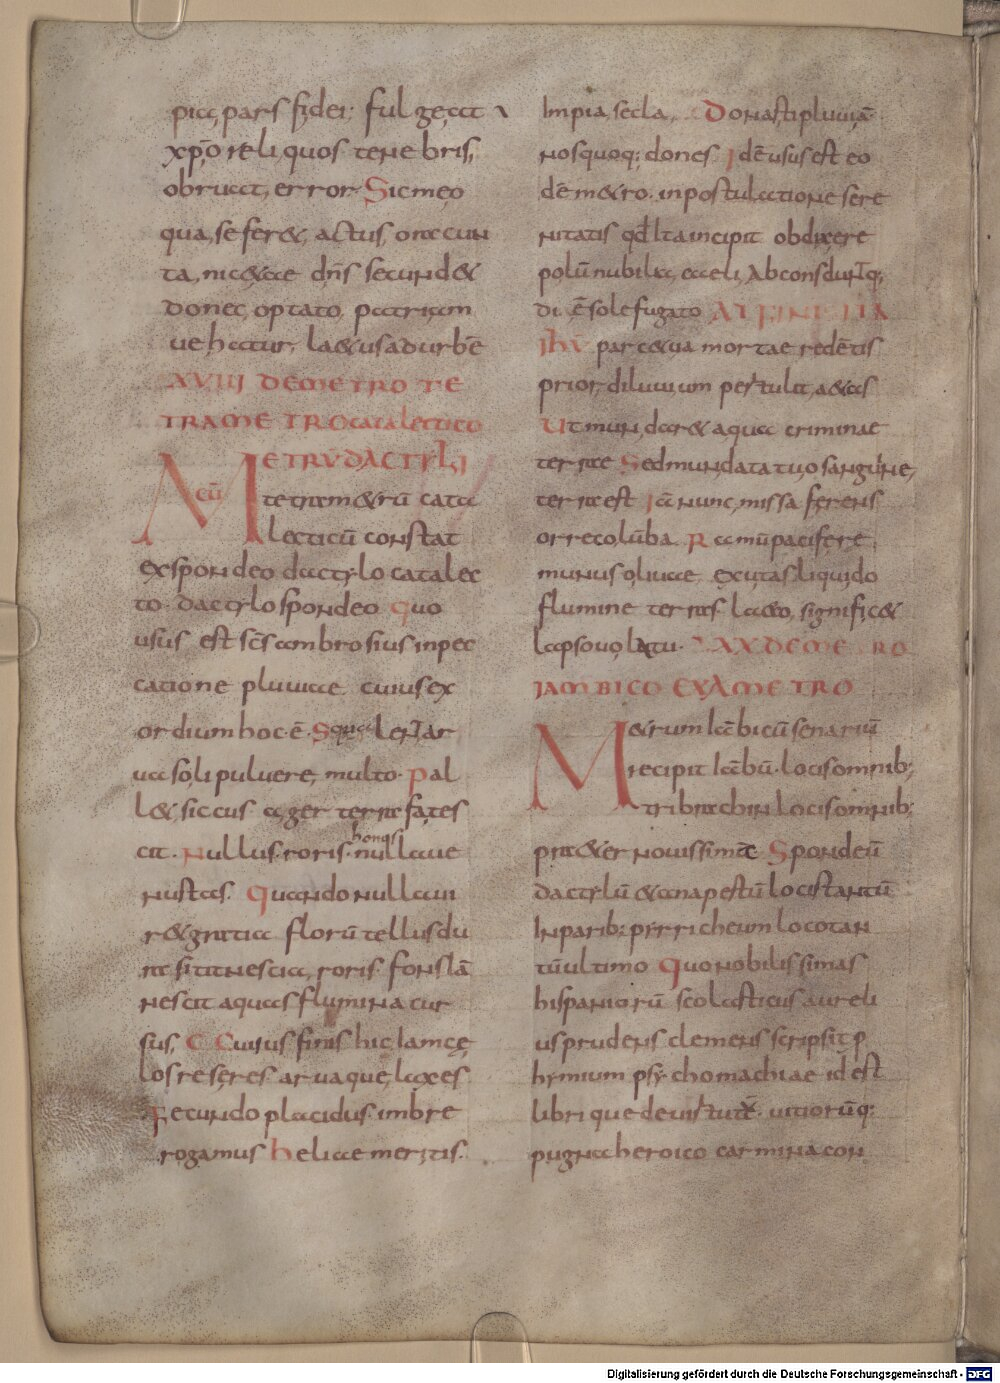 pia, pars fidei; fulgeat
xp̄o reliquos tenebris,
obruat, error. Sic meo
qua, se fer&, actus, ore cun
ta, nic&ae dn̄s secund&
donec, optato patriam
uehatur, la&us ad urbē
XVIIII DE METRO TE
TRAMETRO catalectico
METRV DACTYLI
cū tetram&rū cata
lecticū constat
ex spondeo dactylo catalec
to. dactylo spondeo quo
usus est scs ambrosius in pec
catione pluuiae cuius ex
ordium hoc ē. Squalent ar
ua soli puluere, multo. Pal
l& siccus ager terrae fates
cit. Nullus. roris. honos nulla ue
nustas. Quando nulla ui
r& gratia florū tellus du
ra sitit nescia, roris. fons lā
nescit aquas flumina cur
sus, Cuius finis hic lamce
los reseres arua que laxes
Fecundo placidus imbre
rogamus heliae meritis.
Impia, secla, Donasti pluuiā
nos quoq; dones. Idē usus est eo
dē m&ro. in postulatione sere
nitatis qđ ita incipit obduxere
polū nubila, caeli, Absconduntq;
di ē sole fugato AT FINE ITA
IHV parc& ua mortae redētis
prior, diluuium pertulit, a&as
Ut mundar& aqua criminae
terrae Sed mundata tuo sanguine,
terra est Iā nunc, missa ferens
orre columba Ramū paciferae
munus oliuae excitas liquido
flumine terras la&o, signific&
lapso uolatu. XX DE METRO
IAMBICO EXAMETRO
M&rum Iābicū senariū
recipit Iābū. locis omnib;
tribrachin locis omnib;
pra&er nouissimae Spondeū
dactylū & anapestū locis tantū
Inparib; pyrricheum loco tan
tū ultimo Quo nobilissimas
hispaniorū scolasticus aureli
us prudens clemens scripsit p
hymium psychomachiae id est
libri que de uirtutū. uitiorūq;
pugna heroico carmina con
Digitalisierung gefördert durch die Deutsche Forschungsgemeinschaft - DFG